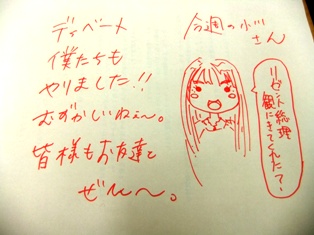 ディベート
僕たちも
やりました!!
むずかしいねぇ〜。
皆様もお友達と
ぜひ〜。
今週の小川
さん
総理
観にきてくれたて〜